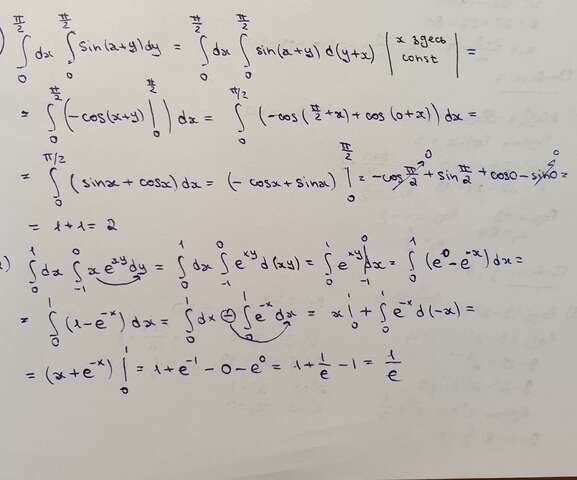 ) ∫_0^{π/2} dx ∫_0^{π/2} sin(x+y)dy = ∫_0^{π/2} dx ∫_0^{π/2} sin(x+y) d(y+x) | x здесь const | =
= ∫_0^{π/2} (-cos(x+y) |_0^{π/2}) dx = ∫_0^{π/2} (-cos(π/2+x) + cos(0+x)) dx =
= ∫_0^{π/2} (sinx + cosx) dx = (-cosx + sinx) |_0^{π/2} = -cos π/2 + sin π/2 + cos0 - sin0 =
= 1+1 = 2
) ∫_0^1 dx ∫_{-1}^0 x e^{xy} dy = ∫_0^1 dx ∫_{-1}^0 e^{xy} d(xy) = ∫_0^1 e^{xy} |_{-1}^0 dx = ∫_0^1 (e^0 - e^{-x}) dx =
= ∫_0^1 (1 - e^{-x}) dx = ∫_0^1 dx - ∫_0^1 e^{-x} dx = x |_0^1 + ∫_0^1 e^{-x} d(-x) =
= (x + e^{-x}) |_0^1 = 1 + e^{-1} - 0 - e^0 = 1 + 1/e - 1 = 1/e